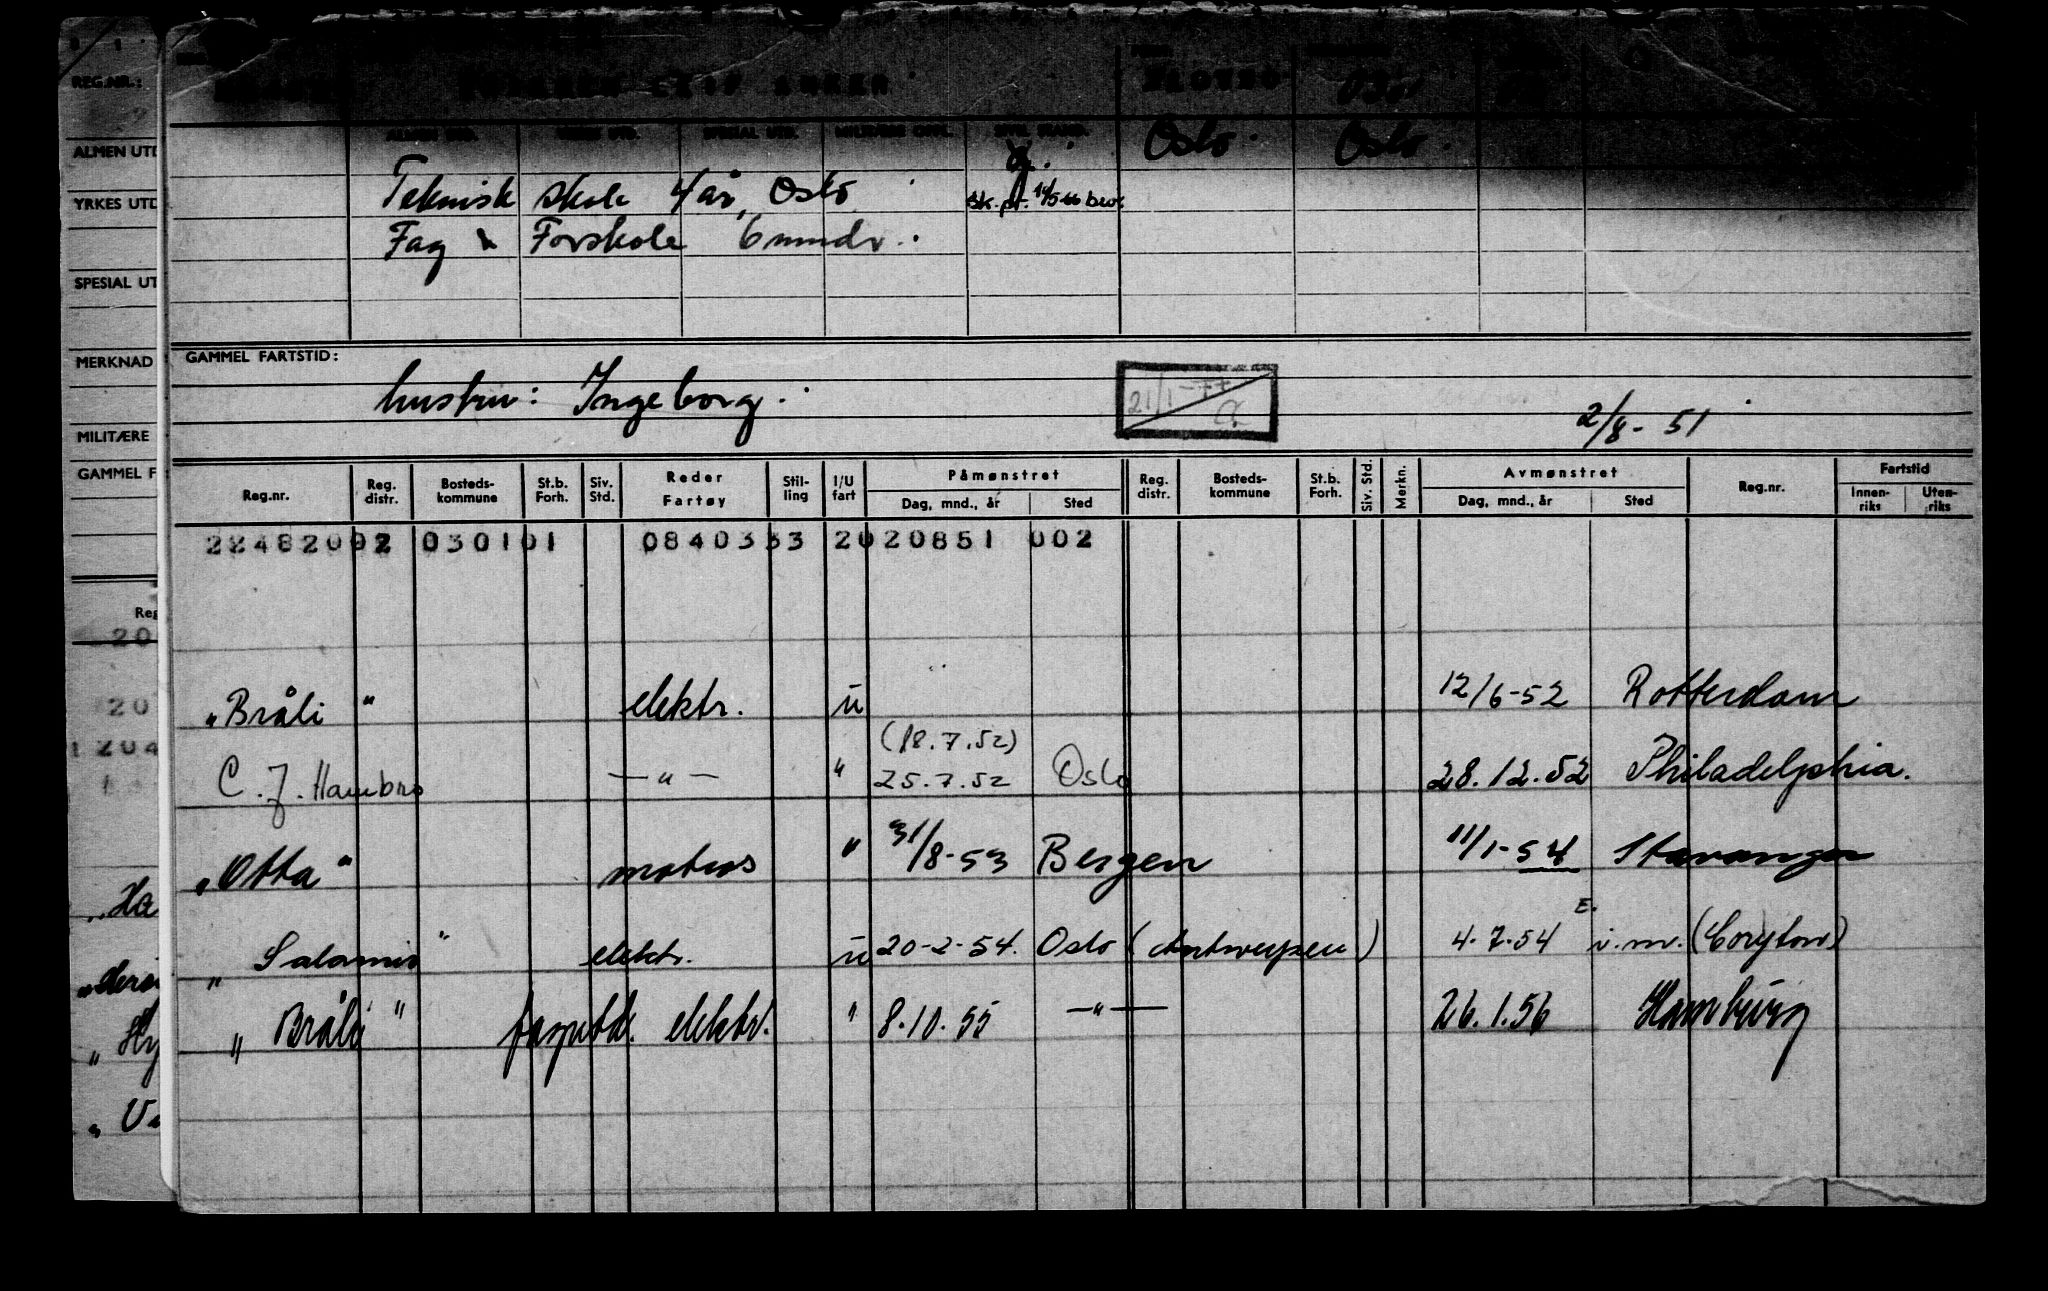 REG.NR.:
ALMEN UTD
YRKES UTD
SPESIAL UT
MERKNAD
MILITÆRE
GAMMEL F
Reg
20
20
1 204
„Ha
„Hy
„
ALMEN UTD. YRKES UTD. SPESIAL UTD. MILITÆRE OPPL. SIVIL STAND.
Oslo. Oslo.
g.
Teknisk skole 4 år, Oslo
Fag Forskole 6 mndr.
GAMMEL FARTSTID:
hustru: Ingeborg.
21/1-77
2/8-51
Reg.nr. Reg. distr. Bosteds-kommune St.b. Forh. Siv. Std. Reder Fartøy Stil-ling I/U fart Påmønstret Dag, mnd., år Sted Reg. distr. Bosteds-kommune St.b. Forh. Siv. Std. Merkn. Avmønstret Dag, mnd., år Sted Reg.nr. Fartstid Innen-riks Uten-riks
22482002 030101 0840333 2020851 002
„Bråli" elektr. u 12/6-52 Rotterdam
(18.7.52)
C. J. Hambro —"— " 25.7.52 Oslo 28.12.52 Philadelphia.
„Otta" matros " 31/8-53 Bergen 11/1-54 Stavanger
E.
„Salamis" elektr. u 20-2-54. Oslo (Antwerpen) 4.7.54 i.m. (Coryton)
„Bråli" fagutd. elektr. " 8.10.55 —"— 26.1.56 Hamburg